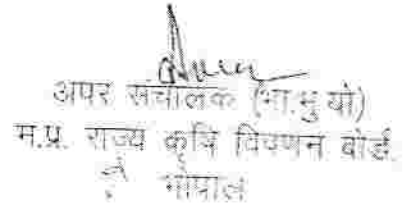 अपर संचालक (भा.भु यो)
म.प्र. राज्य कृषि विपणन बोर्ड
भोपाल